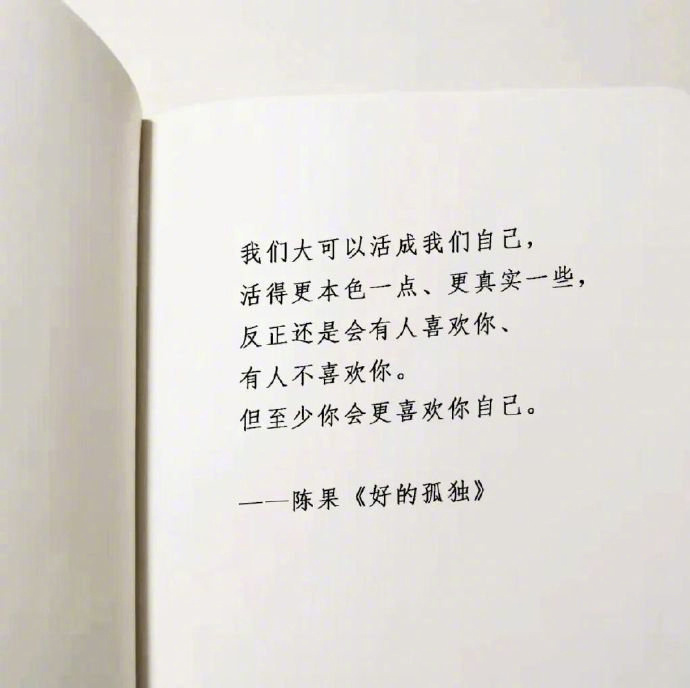 我们大可以活成我们自己，
活得更本色一点、更真实一些，
反正还是会有人喜欢你、
有人不喜欢你。
但至少你会更喜欢你自己。
——陈果《好的孤独》